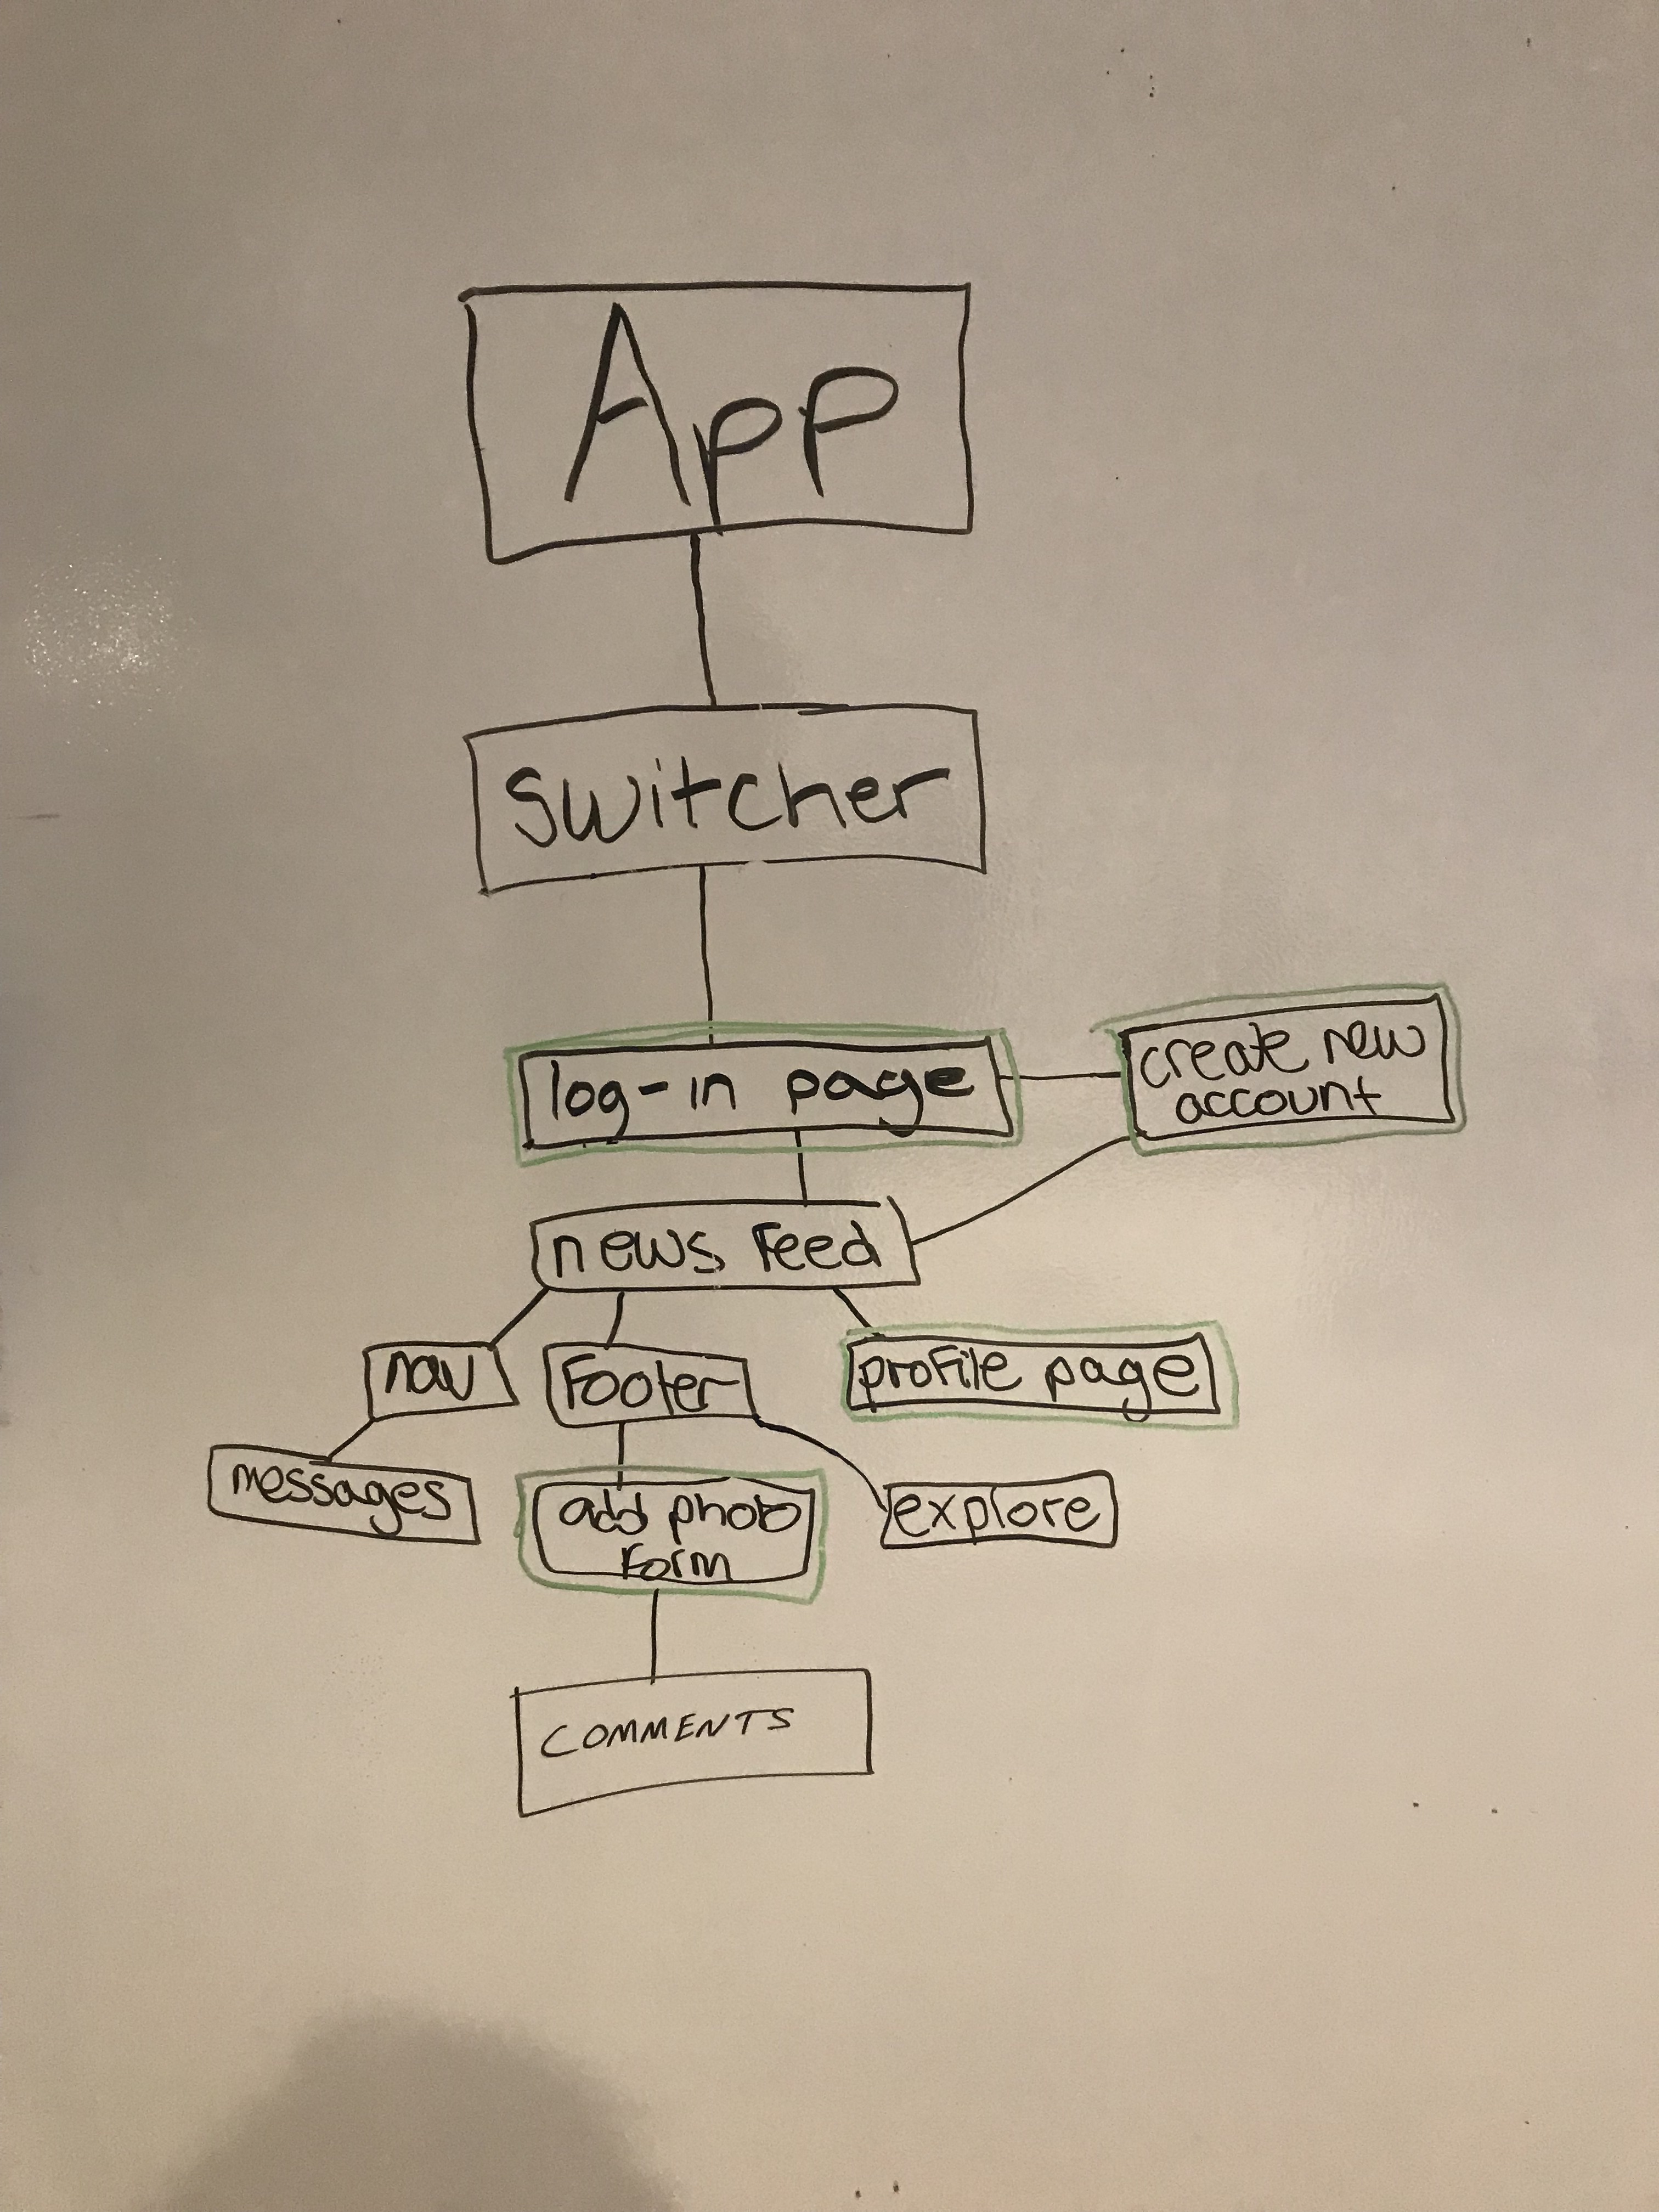 App
switcher
log-in page
create new
account
news feed
nav
Footer
profile page
messages
add photo
Form
explore
COMMENTS